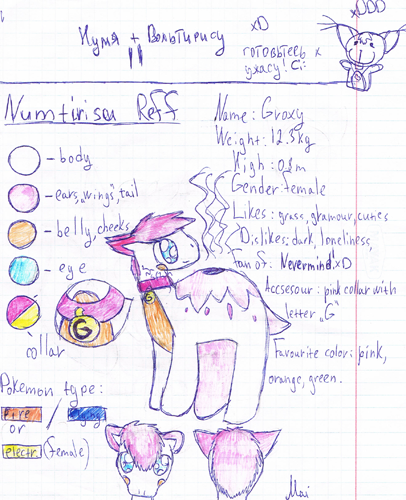 xDDD
Нумя + Вольтирису xD
готовьтесь к
ужасу! C:
Numtirisu Reff
Name: Groxy
Weight: 12.3kg
High: 0.8m
Gender: female
Likes: grass, glamour, cuties
Dislikes: dark, loneliness,
fan of: Nevermind! xD
Accsesour: pink collar with
letter "G"
Favourite color: pink,
orange, green.
- body
- ears, "wings", tail
- belly, cheeks
- eye
collar
G
G
Pokemon type:
fire /
or
electr. (female)
Mai